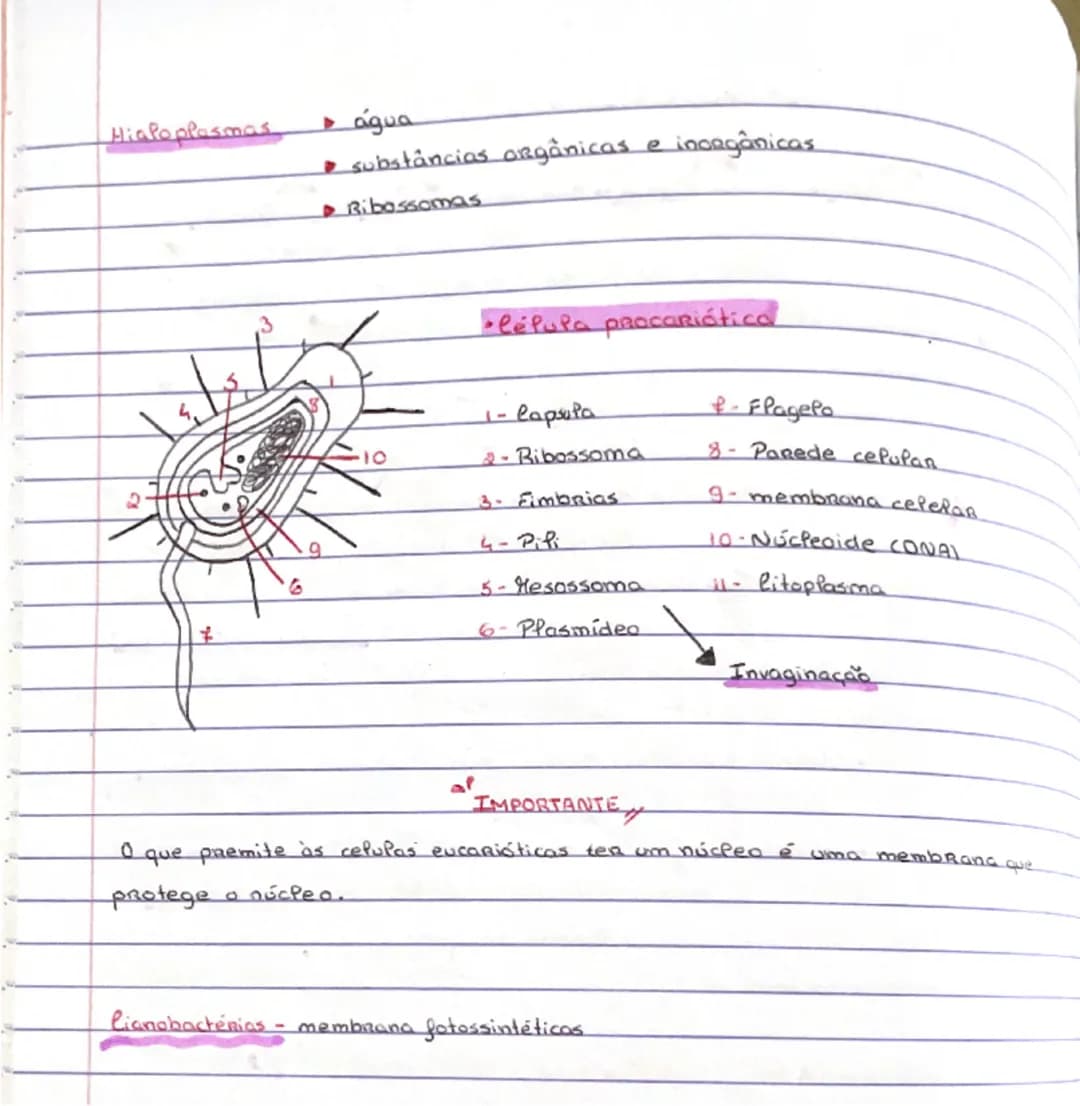 Hialoplasmas ▸ água
▸ substâncias orgânicas e inorgânicas
▸ Ribossomas
• Célula procariótica
1 - Capsula
2 - Ribossoma
3 - Fimbrias
4 - Pili
5 - Mesossoma
6 - Plasmídeo
7 - Flagelo
8 - Parede celular
9 - membrana celelar
10 - Núcleoide (DNA)
11 - Citoplasma
Invaginação
3
5
1
4
8
10
2
9
6
7
IMPORTANTE
O que premite às celulas eucarióticas ter um núcleo é uma membrana que
protege o núcleo.
Cianobactérias - membrana fotossintéticas